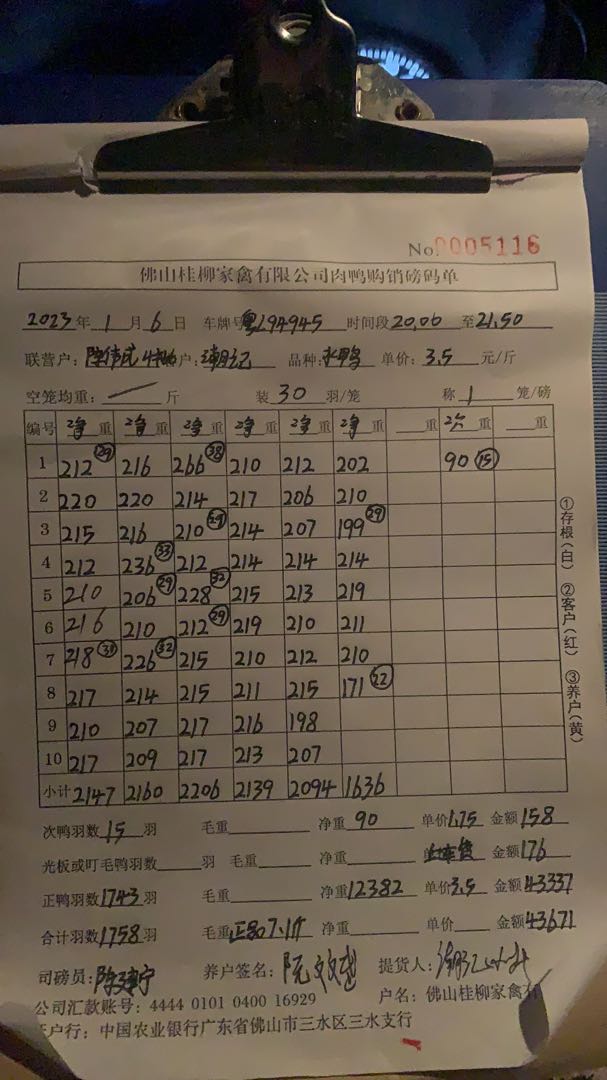 No. 0005116
佛山桂柳家禽有限公司肉鸭购销磅码单
2023年1月6日 车牌号粤194945 时间段20.06至21.50
联营户: 陈伟民 户: 潮记 品种: 水鸭 单价: 3.5 元/斤
空笼均重: 一 斤 装30羽/笼 称1笼/磅
编号 净重 净重 净重 净重 净重 净重 重 次重 重
1 212(29) 216 266(38) 210 212 202 90(15)
2 220 220 214 217 206 210
3 215 216 210(29) 214 207 199(29)
4 212 236(33) 212 214 214 214
5 210 206(29) 228(32) 215 213 219
6 216 210 212(29) 219 210 211
7 218(31) 226(32) 215 210 212 210
8 217 214 215 211 215 171(22)
9 210 207 217 216 198
10 217 209 217 213 207
小计 2147 2160 2206 2139 2094 1636
次鸭羽数15羽 毛重 净重90 单价1.75 金额158
光板或叮毛鸭羽数 羽 毛重 净重 金额176
正鸭羽数1743羽 毛重 净重12382 单价3.5 金额43337
合计羽数1758羽 毛重正品7.1斤 净重 单价 金额43671
司磅员: 养户签名: 阮 提货人:
公司汇款账号: 4444 0101 0400 16929 户名: 佛山桂柳家禽有
户行: 中国农业银行广东省佛山市三水区三水支行
①存根(白) ②客户(红) ③养户(黄)